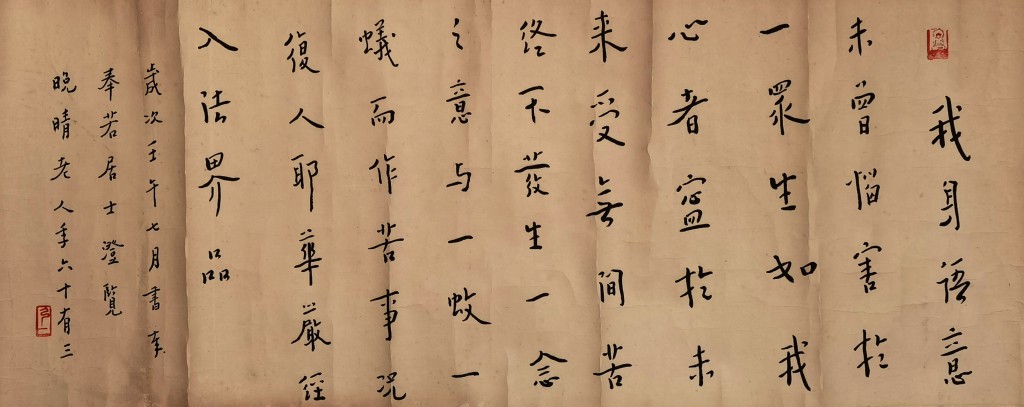 我身語意
未曾惱害於
一眾生如我
心者寧於未
来受無間苦
終不發生一念
之意与一蚊一
蟻而作苦事況
復人耶華嚴經
入法界品
歲次壬午七月書
奉若居士澄覽
晚晴老人年六十有三